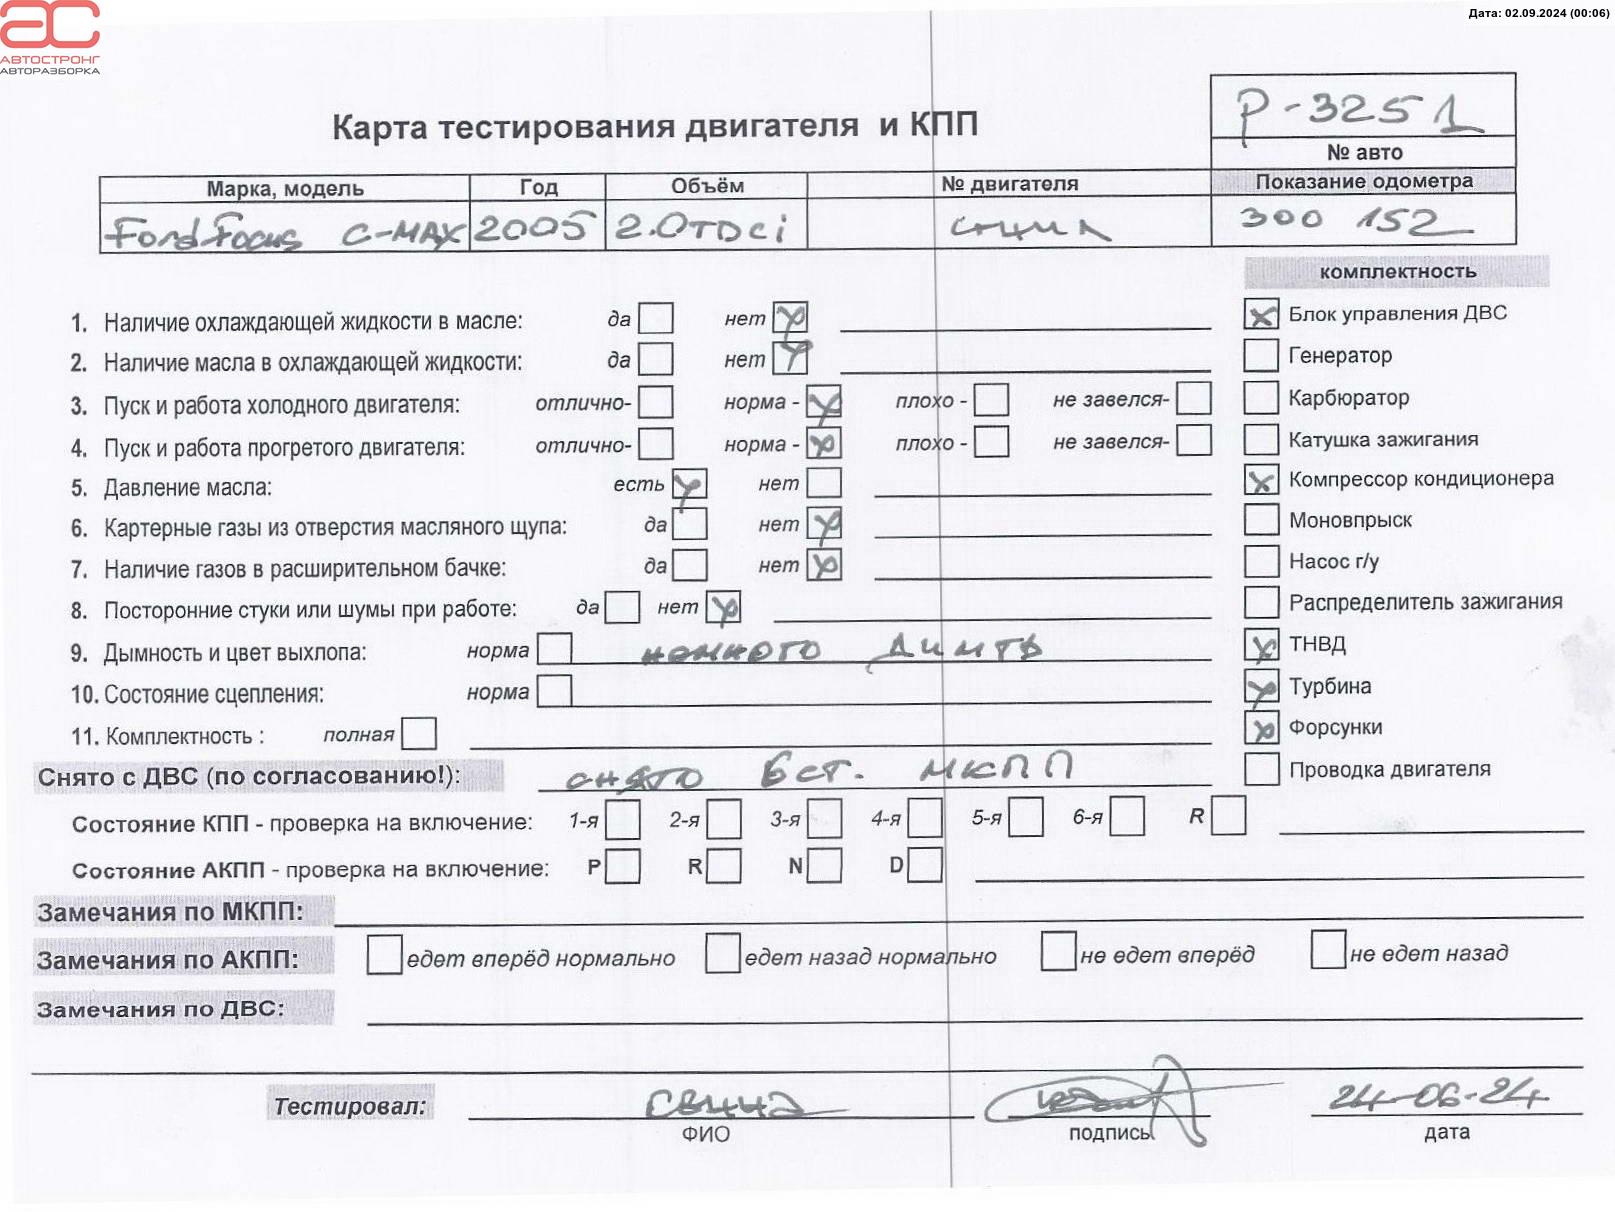 Дата: 02.09.2024 (00:06)
АС
АВТОСТРОНГ
АВТОРАЗБОРКА
Р-3251
№ авто
Карта тестирования двигателя и КПП
Марка, модель Год Объём № двигателя Показание одометра
Ford Focus C-MAX 2005 2.0TDCi 300 152
комплектность
1. Наличие охлаждающей жидкости в масле: да нет
Блок управления ДВС
2. Наличие масла в охлаждающей жидкости: да нет
Генератор
3. Пуск и работа холодного двигателя: отлично- норма - плохо - не завелся-
Карбюратор
4. Пуск и работа прогретого двигателя: отлично- норма - плохо - не завелся-
Катушка зажигания
5. Давление масла: есть нет
Компрессор кондиционера
6. Картерные газы из отверстия масляного щупа: да нет
Моновпрыск
7. Наличие газов в расширительном бачке: да нет
Насос г/у
8. Посторонние стуки или шумы при работе: да нет
Распределитель зажигания
9. Дымность и цвет выхлопа: норма немного
ТНВД
10. Состояние сцепления: норма
Турбина
11. Комплектность : полная
Форсунки
Снято с ДВС (по согласованию!): снято 6ст. МКПП
Проводка двигателя
Состояние КПП - проверка на включение: 1-я 2-я 3-я 4-я 5-я 6-я R
Состояние АКПП - проверка на включение: P R N D
Замечания по МКПП:
Замечания по АКПП: едет вперёд нормально едет назад нормально не едет вперёд не едет назад
Замечания по ДВС:
Тестировал: 24-06-24
ФИО подпись дата